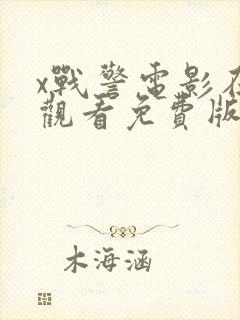 x戰警電影在
觀看免費版
木海涵